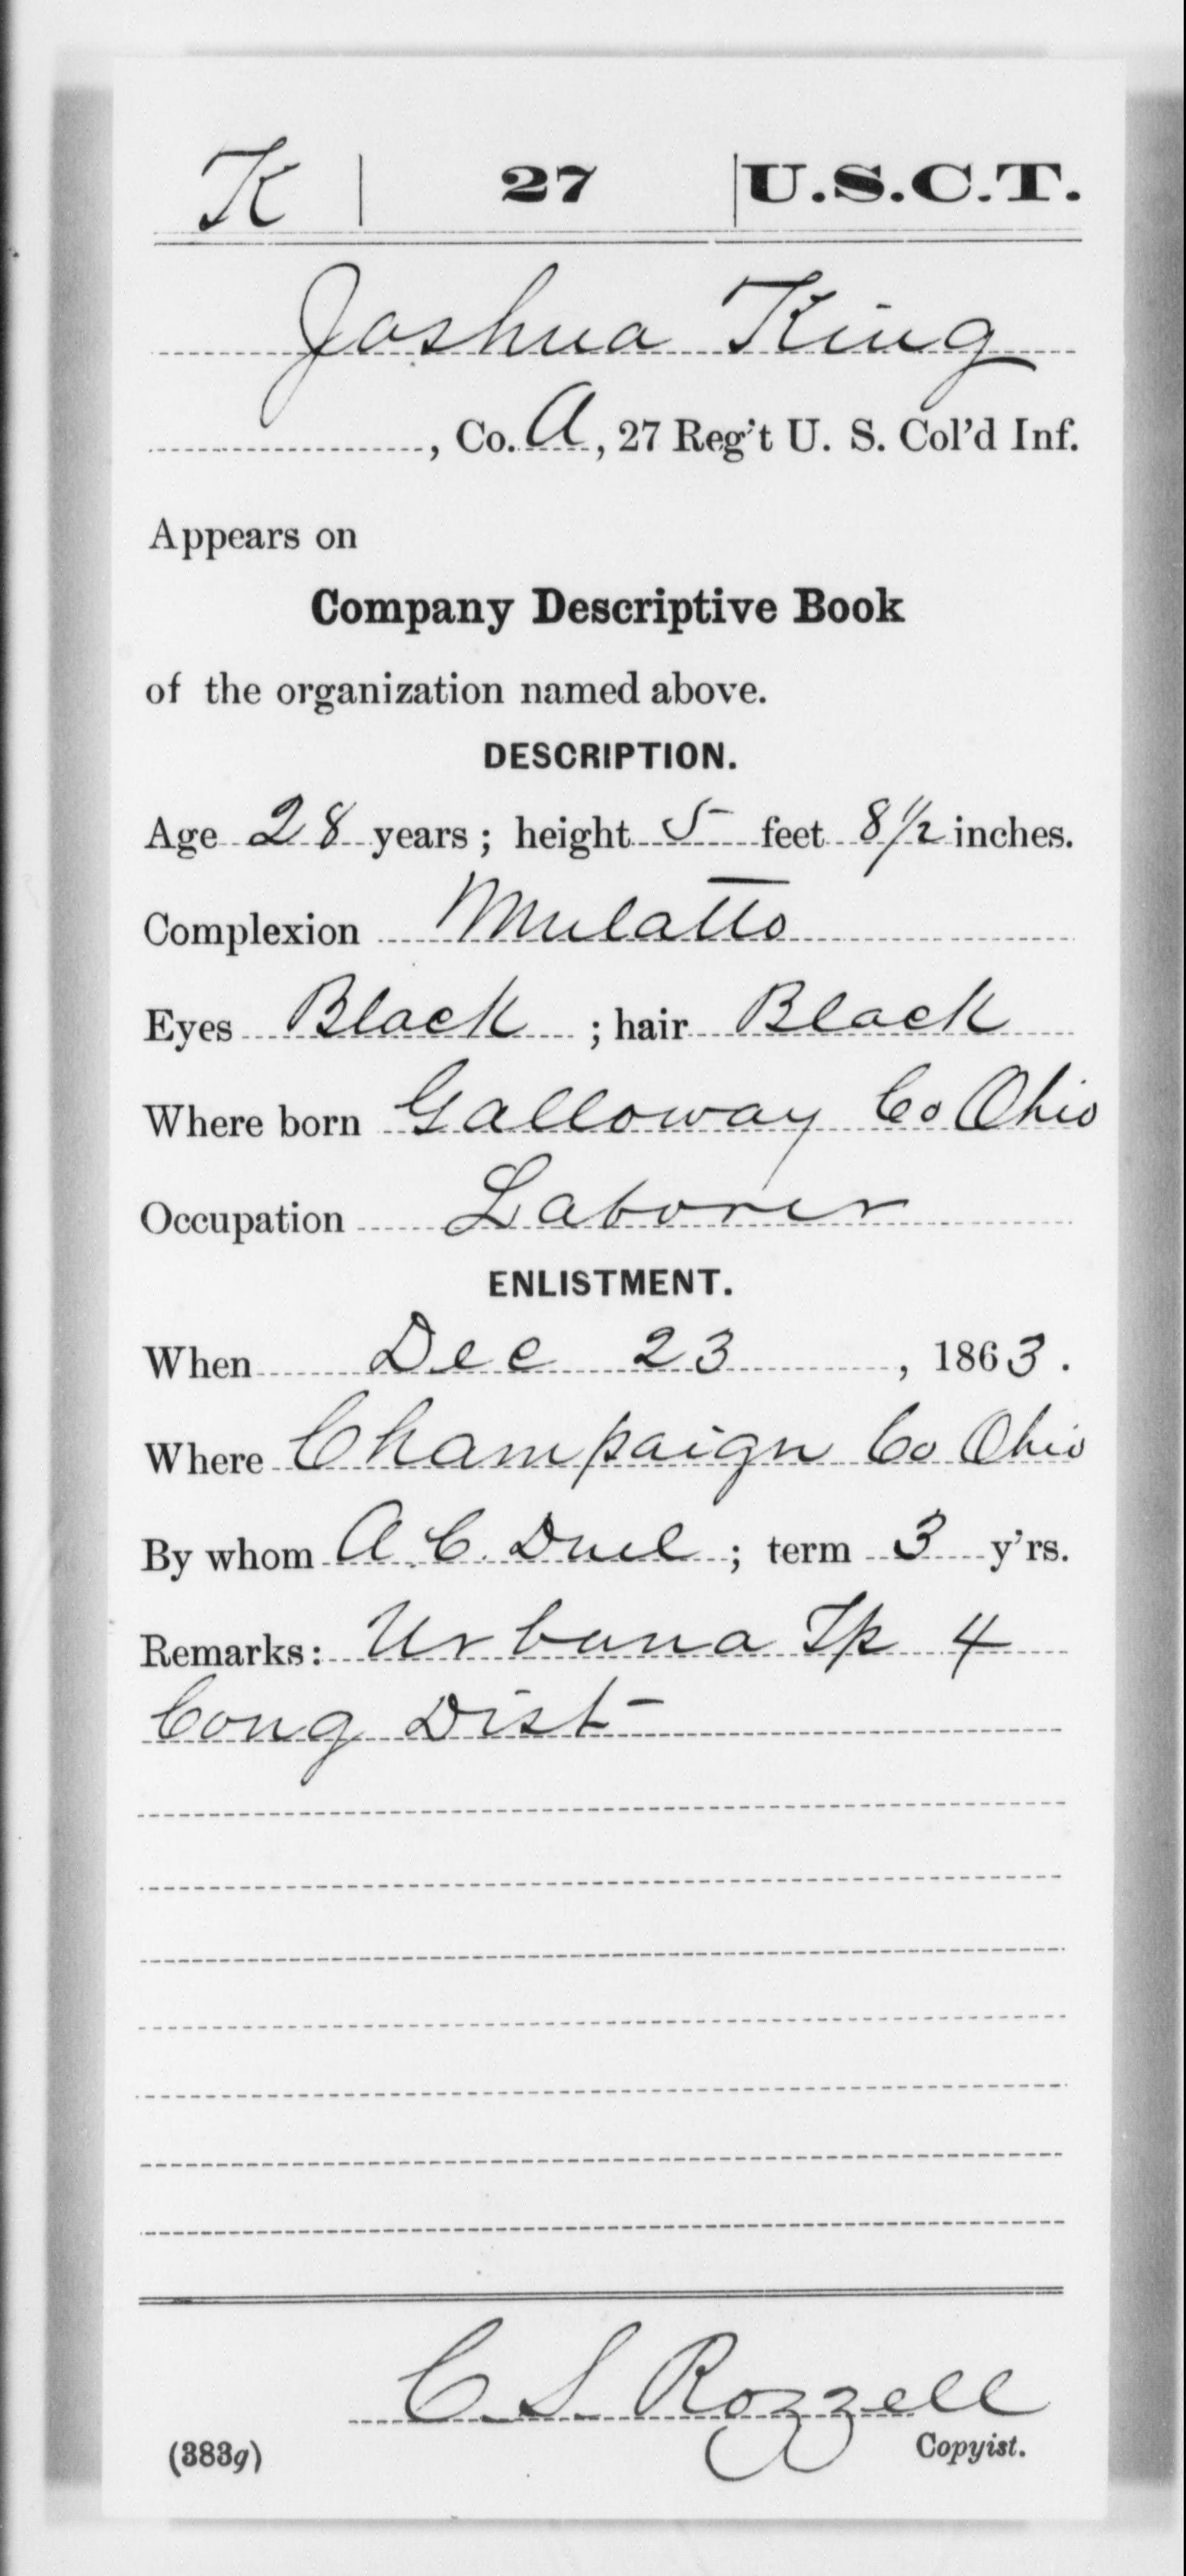 K | 27 | U.S.C.T.
Joshua King
, Co. A, 27 Reg't U. S. Col'd Inf.
Appears on
Company Descriptive Book
of the organization named above.
DESCRIPTION.
Age 28 years; height 5 feet 8 1/2 inches.
Complexion Mulatto
Eyes Black ; hair Black
Where born Galloway Co Ohio
Occupation Laborer
ENLISTMENT.
When Dec 23 , 1863.
Where Champaign Co Ohio
By whom A. C. Duel ; term 3 y'rs.
Remarks: Urbana Tp 4
Cong Dist
C S Rozzell
(383g) Copyist.